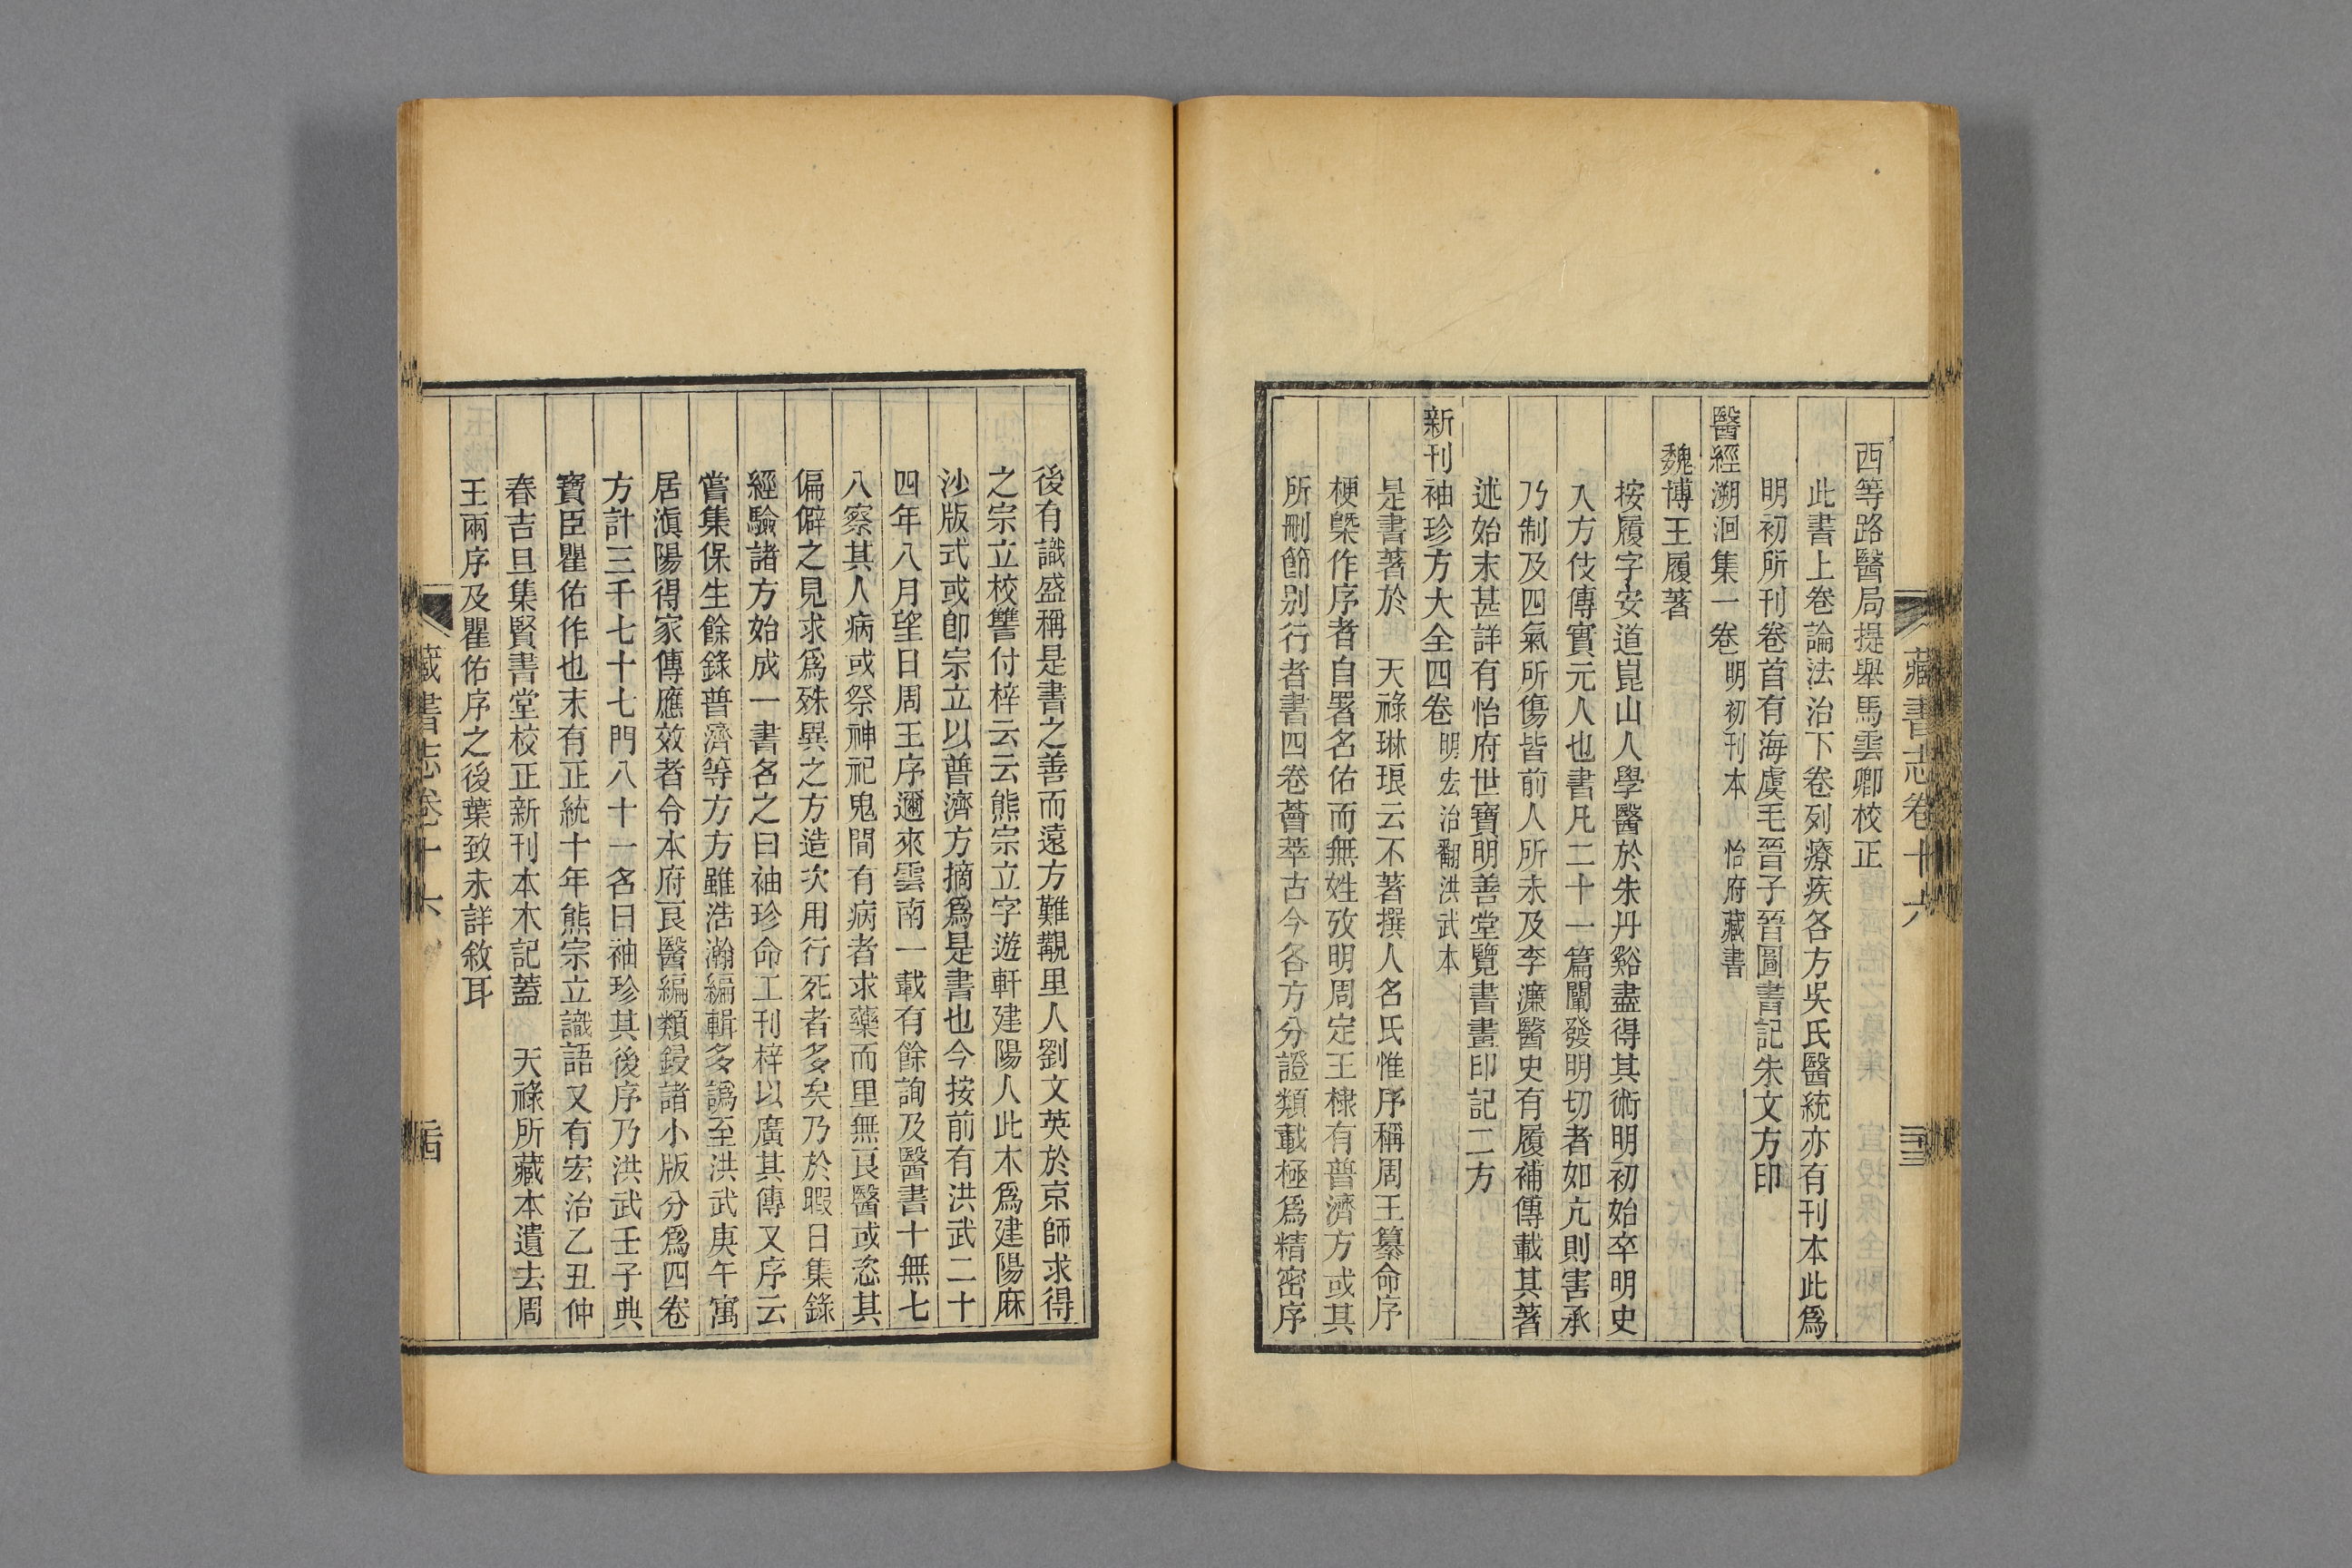 藏書志卷十六
三十三
西等路醫局提舉馬雲卿校正
此書上卷論法治下卷列療疾各方吳氏醫統亦有刊本此爲
明初所刊卷首有海虞毛晉子晉圖書記朱文方印
醫經溯洄集一卷 明初刊本 怡府藏書
魏博王履著
按履字安道崑山人學醫於朱丹谿盡得其術明初始卒明史
入方伎傳實元人也書凡二十一篇闡發明切者如亢則害承
乃制及四氣所傷皆前人所未及李濂醫史有履補傳載其著
述始末甚詳有怡府世寶明善堂覽書畫印記二方
新刊袖珍方大全四卷 明宏治翻洪武本
是書著於 天祿琳琅云不著撰人名氏惟序稱周王纂命序
梗槩作序者自署名佑而無姓攷明周定王橚有普濟方或其
所刪節別行者書四卷薈萃古今各方分證類載極爲精密序
後有識盛稱是書之善而遠方難覯里人劉文英於京師求得
之宗立校讐付梓云云熊宗立字道軒建陽人此本爲建陽麻
沙版式或卽宗立以普濟方摘爲是書也今按前有洪武二十
四年八月望日周王序邇來雲南一載有餘詢及醫書十無七
八察其人病或祭神祀鬼間有病者求藥而里無良醫或恣其
偏僻之見求爲殊異之方造次用行死者多矣乃於暇日集錄
經驗諸方始成一書名之曰袖珍命工刊梓以廣其傳又序云
嘗集保生餘錄普濟等方方雖浩瀚編輯多譌至洪武庚午寓
居滇陽得家傳應效者令本府良醫編類鋟諸小版分爲四卷
方計三千七十七門八十一名曰袖珍其後序乃洪武壬子典
寶臣瞿佑作也末有正統十年熊宗立識語又有宏治乙丑仲
春吉旦集賢書堂校正新刊本木記蓋 天祿所藏本遺去周
王兩序及瞿佑序之後葉致未詳敘耳
藏書志卷十六